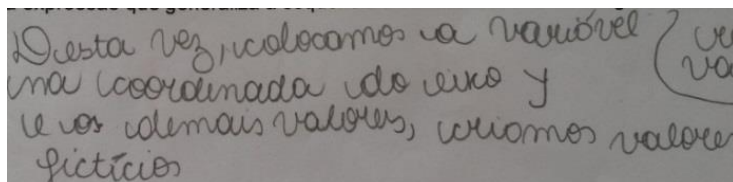 Desta vez, colocamos a variável
na coordenada do eixo y
e os demais valores, criamos valore
fictícios